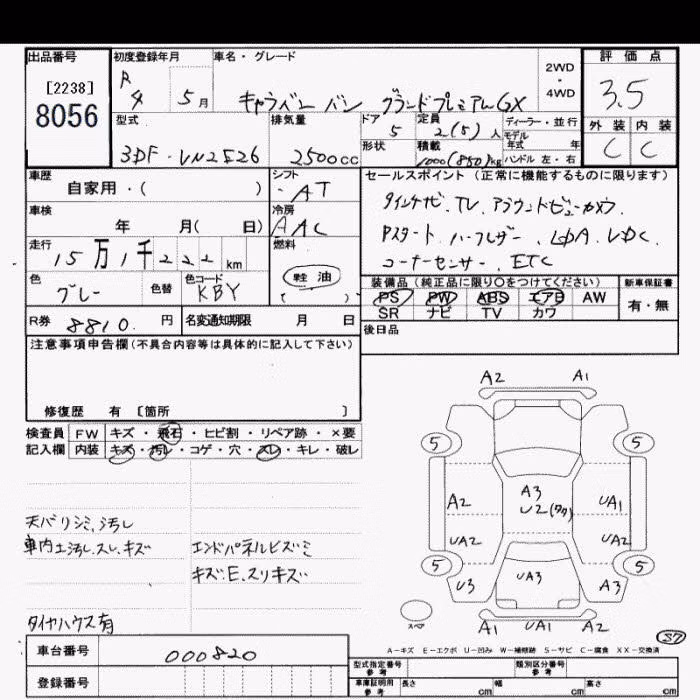 出品番号
[2238]
8056
初度登録年月
R4 5月
車名・グレード
キャラバン バン グランドプレミアムGX
2WD
・
4WD
評価点
3.5
外装 内装
C C
型式
3DF-VN2E26
排気量
2500cc
ドア
5
形状
定員
2(5)人
積載
1000(850)kg
ディーラー・並行
モデル
年式 年
ハンドル 左・右
車歴
自家用・( )
シフト
AT
車検
年 月( 日)
冷房
AAC
走行
15万1千222km
燃料
軽油
( )
色
グレー
色替
色コード
KBY
R券 8810.円
名変通知期限 月 日
セールスポイント(正常に機能するものに限ります)
9インチナビ、TV、アラウンドビューカメラ、
Pスタート、ハーフレザー、LDA、VDC、
コーナーセンサー、ETC
装備品(純正品に限り○をつけてください)
PS PW ABS エアB AW
SR ナビ TV カワ
新車保証書
有・無
後日品
注意事項申告欄(不具合内容等は具体的に記入して下さい)
修復歴 有 [箇所 ]
検査員 FW キズ・飛石・ヒビ割・リペア跡・×要
記入欄 内装 キズ・汚レ・コゲ・穴・スレ・キレ・破レ
天バリシミ、汚し
車内土汚し、スレ、キズ
エンドパネルヒズミ
キズ、E、スリキズ
タイヤハウス有
A2 A1
5 5
A3
U2(ワク)
A2 UA1
UA2 UA2
5 5
U3 UA3 A3
スペア
A1 UA1 A2
S7
A-キズ E-エクボ U-凹み W-補修跡 S-サビ C-腐食 XX-交換済
車台番号
000820
登録番号
型式指定番号
参考
類別区分番号
参考
車庫証明用
参考
長さ cm 幅 cm 高さ cm